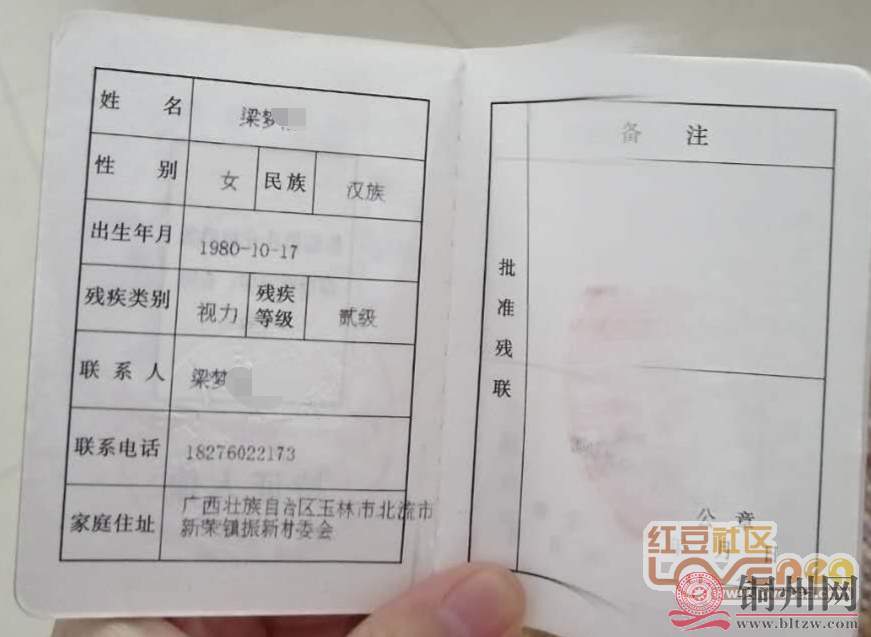 姓 名 梁梦
性 别 女 民族 汉族
出生年月 1980-10-17
残疾类别 视力 残疾等级 贰级
联系人 梁梦
联系电话 18276022173
家庭住址 广西壮族自治区玉林市北流市
新荣镇振新村委会
备 注
批准残联
公 章
月 日
红豆社区
铜州网
www.bltzw.com